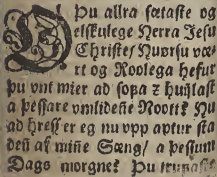 ÞU allra sætaste og
elskulege Herra Jesu
Christe Huørsu væ-
rt og Roolega hefur
þu vnt mier ad sofa z huijlast
a þessare vmlidene Noott? Nu
ad hress er eg nu vpp aptur sta
deñ af miñe Sæng/ a þessum
Dags morgne? Þu